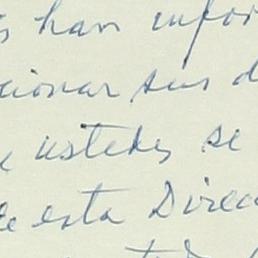 s han infor
cionar sus d
e ustedes se
de esta Direc